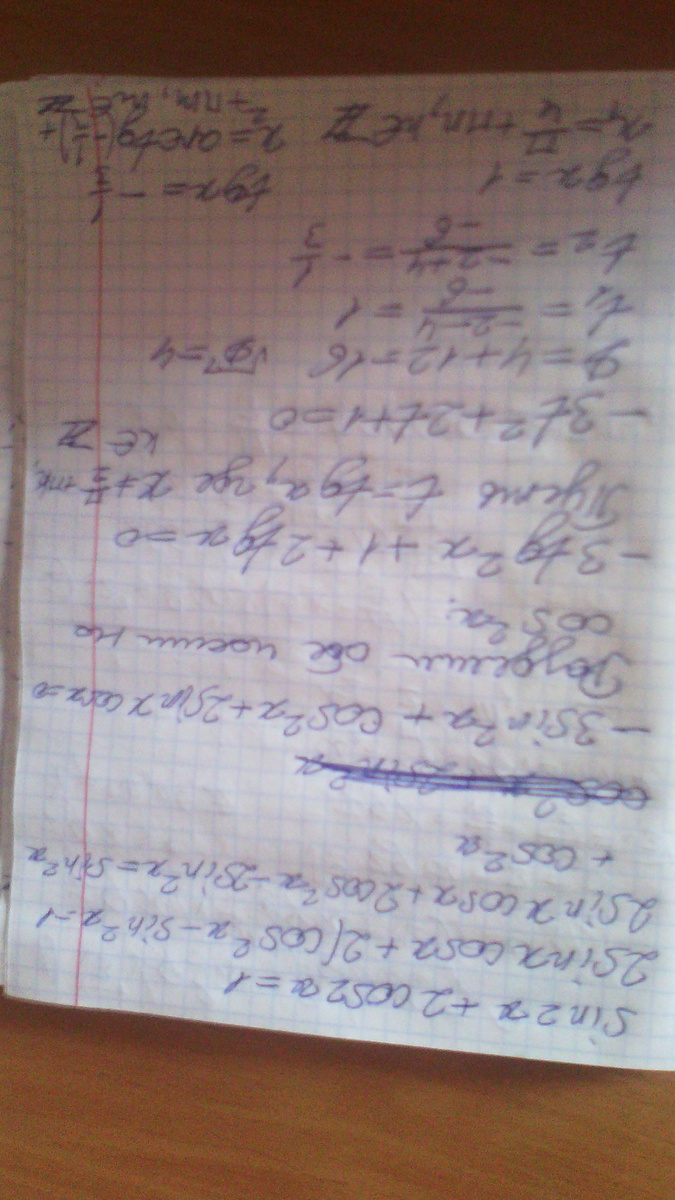 sin2x + 2cos2x = 1
2sinx cosx + 2(cos²x - sin²x = 1
2sinx cosx + 2cos²x - 2sin²x = sin²x
+ cos²x
-3sin²x + cos²x + 2sinx cosx = 0
Разделим обе части на
cos²x:
-3tg²x + 1 + 2tgx = 0
Пусть t = tgx, где x ≠ π/2 + πk,
k ∈ Z
-3t² + 2t + 1 = 0
D = 4 + 12 = 16 √D = 4
t₁ = (-2-4)/(-6) = 1
t₂ = (-2+4)/(-6) = -1/3
tgx = 1 tgx = -1/3
x₁ = π/4 + πn, n ∈ Z x₂ = arctg(-1/3) +
+ πm, m ∈ Z